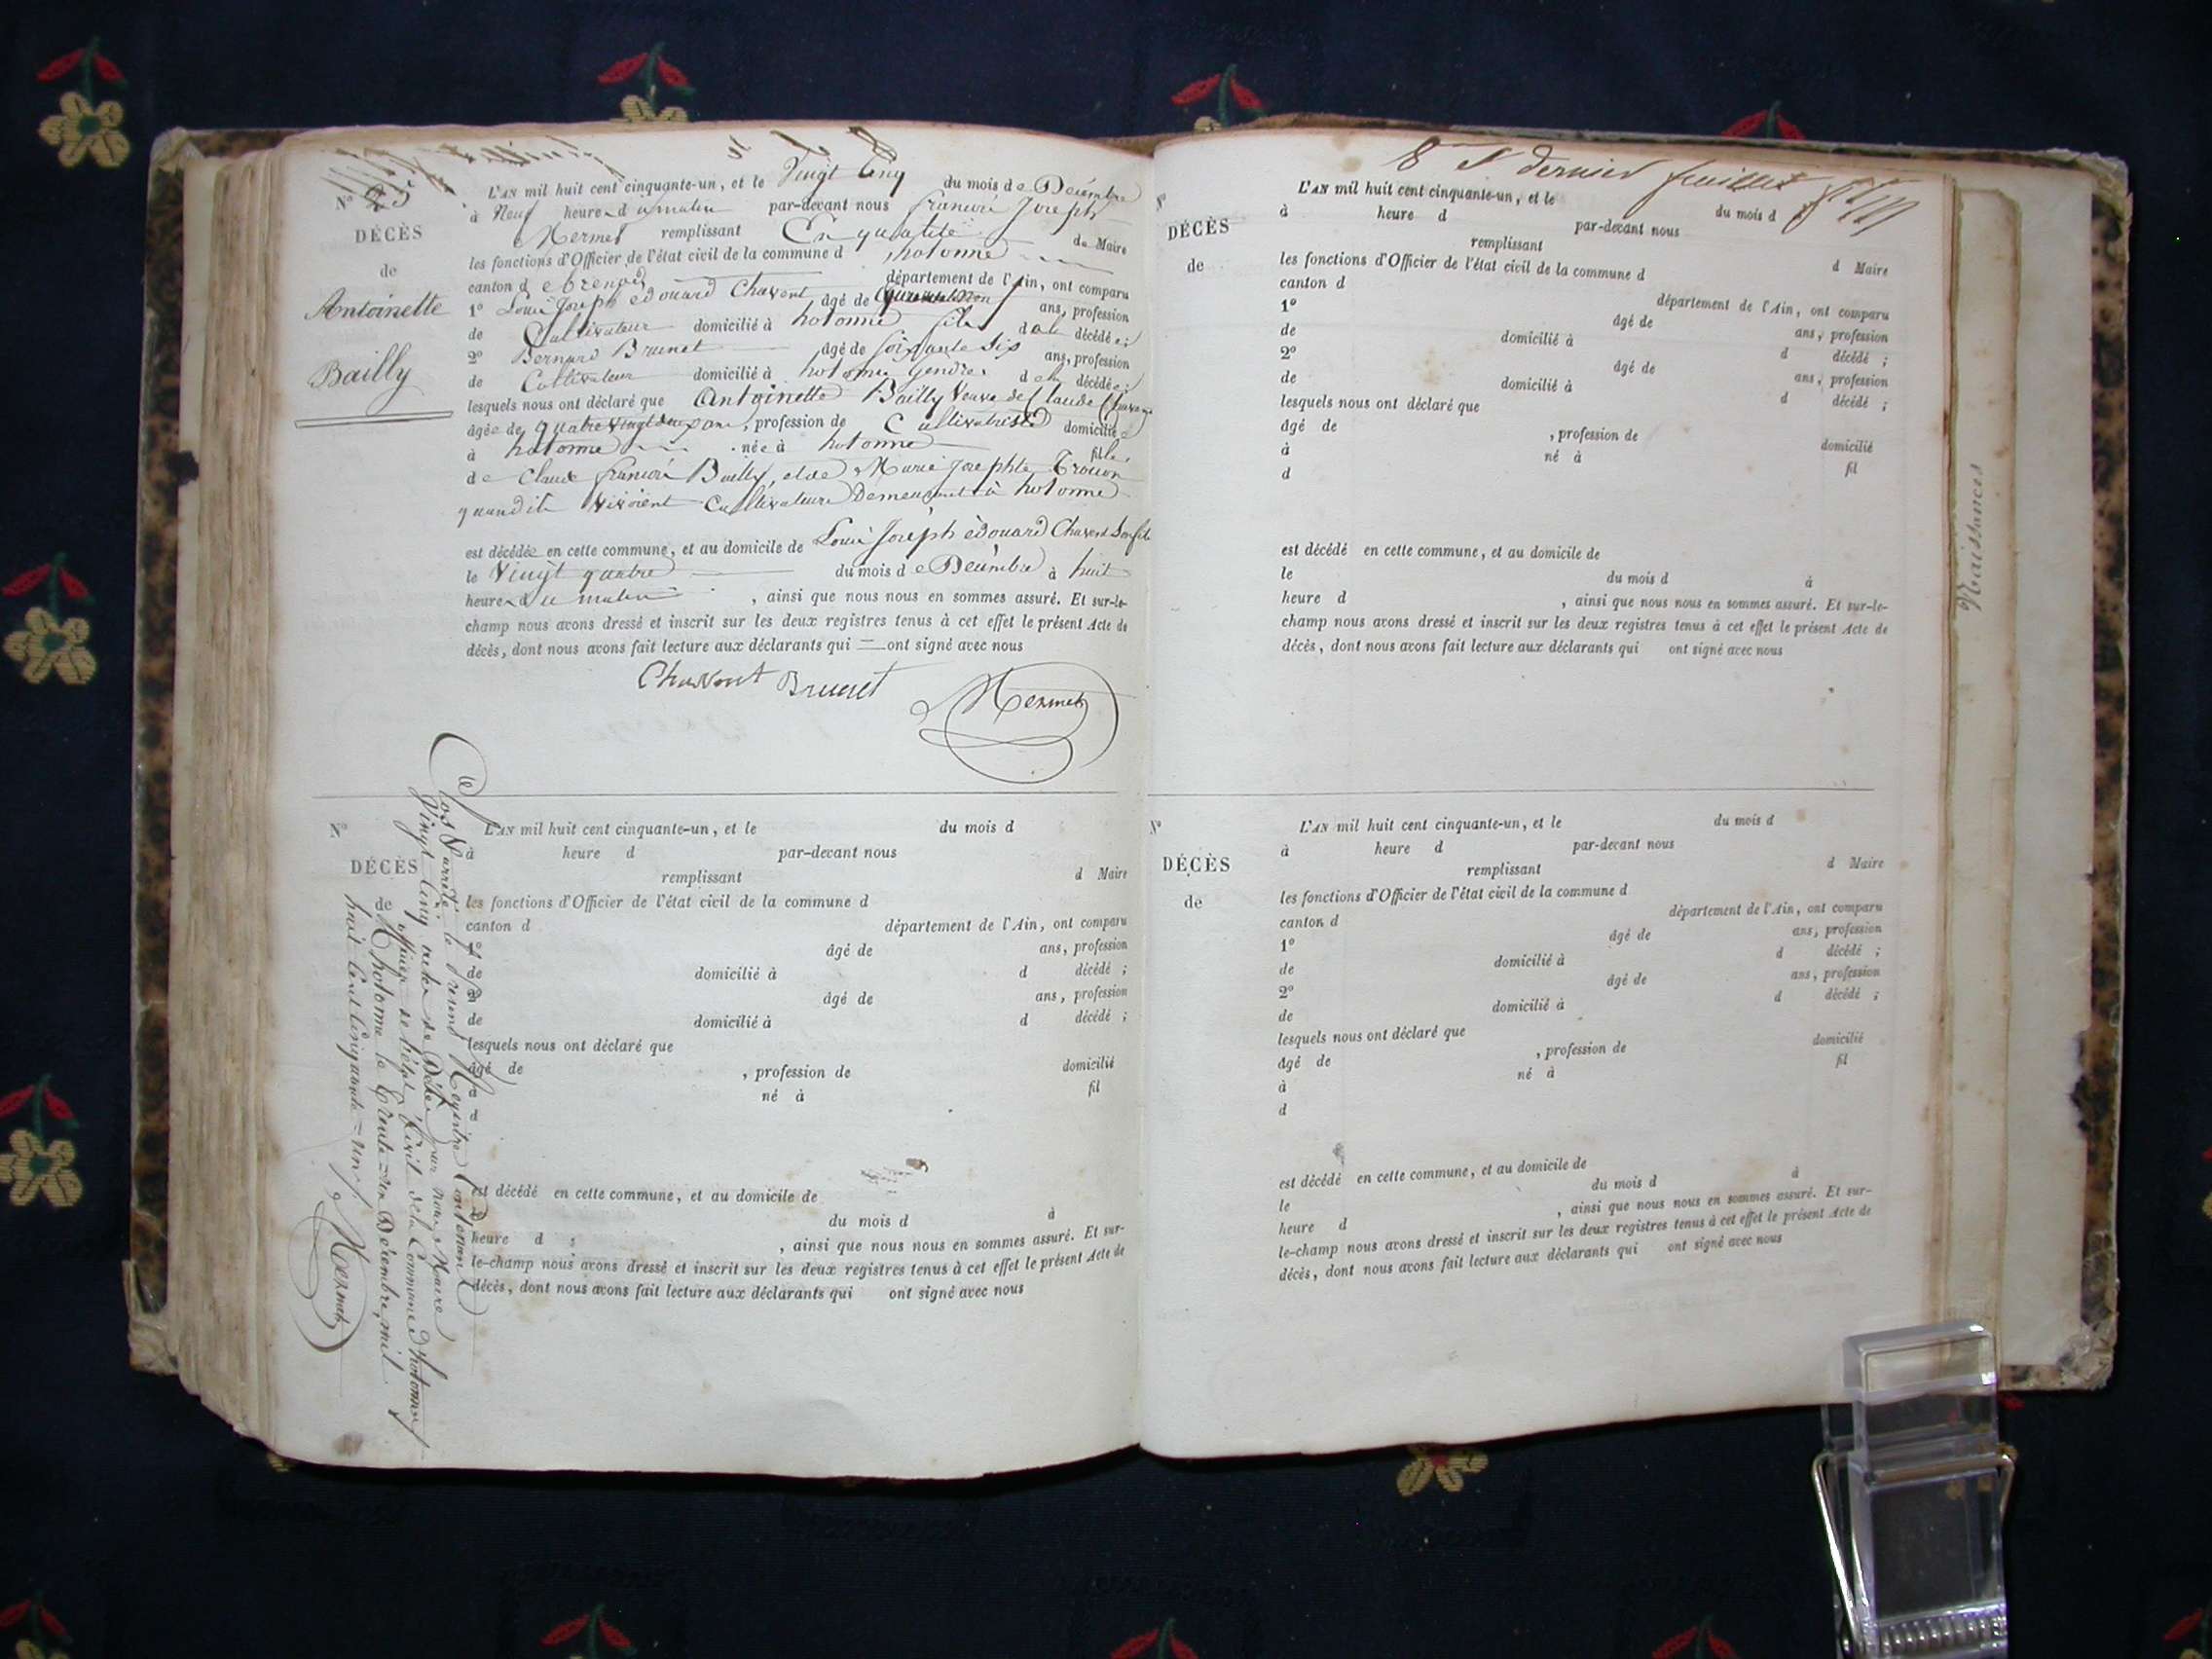 N° 25
DÉCÈS
de
Antoinette
Bailly
L'AN mil huit cent cinquante-un, et le Vingt Cinq du mois de Décembre
à Neuf heures du matin par-devant nous françois Joseph
Mermet remplissant En qualité de Maire
les fonctions d'Officier de l'état civil de la commune d hotonne
canton de brenod département de l'Ain, ont comparu
1° Louis Joseph édouard Chavent âgé de ans, profession
de Cultivateur domicilié à hotonne fils de la décédée;
2° Bernard Brunet âgé de soixante Six ans, profession
de Cultivateur domicilié à hotonne gendre de la décédée;
lesquels nous ont déclaré que Antoinette Bailly Veuve de Claude Chavent
âgée de quatre vingt deux ans, profession de Cultivatrice domiciliée
à hotonne née à hotonne fille
de Claude françois Bailly, et de Marie Josephte
quand ils vivoient Cultivateurs Demeurant à hotonne
est décédée en cette commune, et au domicile de Louis Joseph édouard Chavent Son fils
le Vingt quatre du mois de Décembre à huit
heures du matin, ainsi que nous nous en sommes assuré. Et sur-le-
champ nous avons dressé et inscrit sur les deux registres tenus à cet effet le présent Acte de
décès, dont nous avons fait lecture aux déclarants qui ont signé avec nous
Chavent Brunet Mermet
N°
DÉCÈS
de
L'AN mil huit cent cinquante-un, et le du mois d
à heure d par-devant nous
remplissant d Maire
les fonctions d'Officier de l'état civil de la commune d
canton d département de l'Ain, ont comparu
1° âgé de ans, profession
de domicilié à d décédé ;
2° âgé de ans, profession
de domicilié à d décédé ;
lesquels nous ont déclaré que
âgé de , profession de domicilié
à né à fil
d
est décédé en cette commune, et au domicile de
le du mois d à
heure d , ainsi que nous nous en sommes assuré. Et sur-
le-champ nous avons dressé et inscrit sur les deux registres tenus à cet effet le présent Acte de
décès, dont nous avons fait lecture aux déclarants qui ont signé avec nous
Clos & arrêté le présent Registre Contenant
Vingt Cinq actes de Décès par nous Maire
officier de l'état Civil de la Commune d'hotonne
A hotonne le trente-un Décembre, mil
huit Cent Cinquante-un
Mermet
8 & dernier feuillet
N°
DÉCÈS
de
L'AN mil huit cent cinquante-un, et le du mois d
à heure d par-devant nous
remplissant d Maire
les fonctions d'Officier de l'état civil de la commune d
canton d département de l'Ain, ont comparu
1° âgé de ans, profession
de domicilié à d décédé ;
2° âgé de ans, profession
de domicilié à d décédé ;
lesquels nous ont déclaré que
âgé de , profession de domicilié
à né à fil
d
est décédé en cette commune, et au domicile de
le du mois d à
heure d , ainsi que nous nous en sommes assuré. Et sur-le-
champ nous avons dressé et inscrit sur les deux registres tenus à cet effet le présent Acte de
décès, dont nous avons fait lecture aux déclarants qui ont signé avec nous
N°
DÉCÈS
de
L'AN mil huit cent cinquante-un, et le du mois d
à heure d par-devant nous
remplissant d Maire
les fonctions d'Officier de l'état civil de la commune d
canton d département de l'Ain, ont comparu
1° âgé de ans, profession
de domicilié à d décédé ;
2° âgé de ans, profession
de domicilié à d décédé ;
lesquels nous ont déclaré que
âgé de , profession de domicilié
à né à fil
d
est décédé en cette commune, et au domicile de
le du mois d à
heure d , ainsi que nous nous en sommes assuré. Et sur-
le-champ nous avons dressé et inscrit sur les deux registres tenus à cet effet le présent Acte de
décès, dont nous avons fait lecture aux déclarants qui ont signé avec nous
Naissances